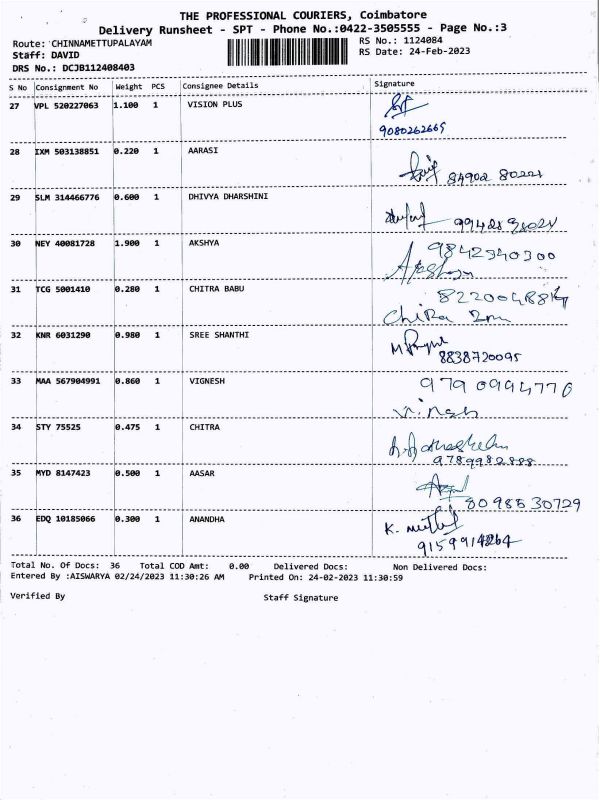 THE PROFESSIONAL COURIERS, Coimbatore
Delivery Runsheet - SPT - Phone No.:0422-3505555 - Page No.:3
Route: CHINNAMETTUPALAYAM
RS No.: 1124084
Staff: DAVID
RS Date: 24-Feb-2023
DRS No.: DCJB112408403
S No Consignment No Weight PCS Consignee Details Signature
27 VPL 520227063 1.100 1 VISION PLUS
9080262665
28 IXM 503138851 0.220 1 AARASI
84902 80221
29 SLM 314466776 0.600 1 DHIVYA DHARSHINI
30 NEY 40081728 1.900 1 AKSHYA 9842340300
31 TCG 5001410 0.280 1 CHITRA BABU
Chitra
32 KNR 6031290 0.980 1 SREE SHANTHI
8838720095
33 MAA 567904991 0.860 1 VIGNESH 9790994770
34 STY 75525 0.475 1 CHITRA
9789982888
35 MYD 8147423 0.500 1 AASAR
8098530729
36 EDQ 10185066 0.300 1 ANANDHA
Total No. Of Docs: 36 Total COD Amt: 0.00 Delivered Docs: Non Delivered Docs:
Entered By :AISWARYA 02/24/2023 11:30:26 AM Printed On: 24-02-2023 11:30:59
Verified By Staff Signature